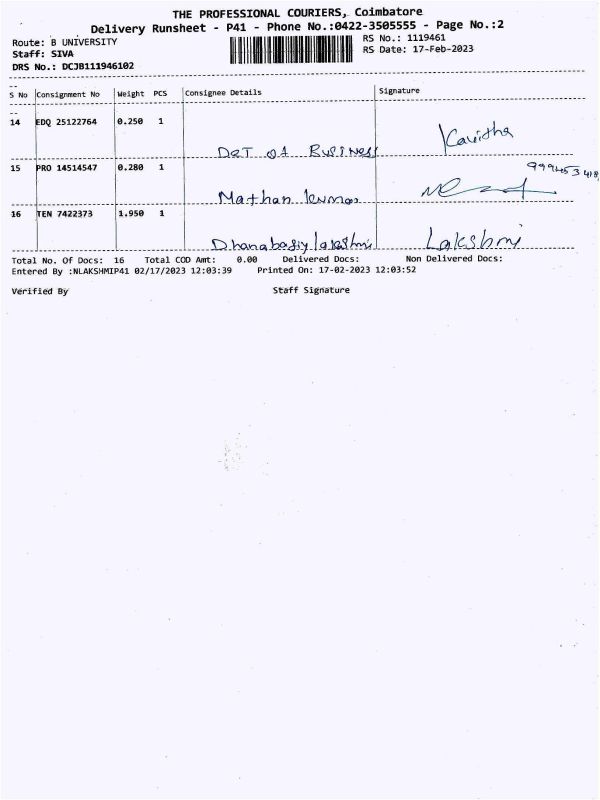 THE PROFESSIONAL COURIERS, Coimbatore
Delivery Runsheet - P41 - Phone No.:0422-3505555 - Page No.:2
Route: B UNIVERSITY
RS No.: 1119461
Staff: SIVA
RS Date: 17-Feb-2023
DRS No.: DCJB111946102
S No Consignment No Weight PCS Consignee Details Signature
14 EDQ 25122764 0.250 1
Kavitha
DET of BUSINESS
15 PRO 14514547 0.280 1
Mathan kumar
16 TEN 7422373 1.950 1
Lakshmi
Total No. Of Docs: 16 Total COD Amt: 0.00 Delivered Docs: Non Delivered Docs:
Entered By :NLAKSHMIP41 02/17/2023 12:03:39 Printed On: 17-02-2023 12:03:52
Verified By Staff Signature